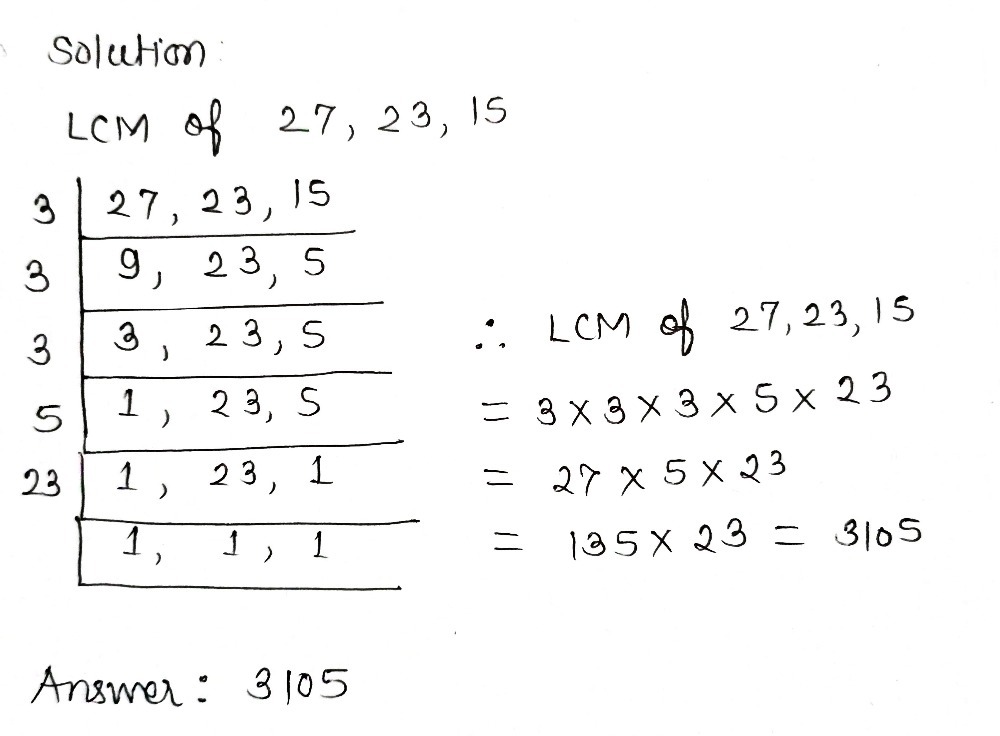 Solution:
LCM of 27, 23, 15
3 | 27, 23, 15
3 | 9, 23, 5
3 | 3, 23, 5
5 | 1, 23, 5
23 | 1, 23, 1
1, 1, 1
∴ LCM of 27, 23, 15
= 3 × 3 × 3 × 5 × 23
= 27 × 5 × 23
= 135 × 23 = 3105
Answer: 3105